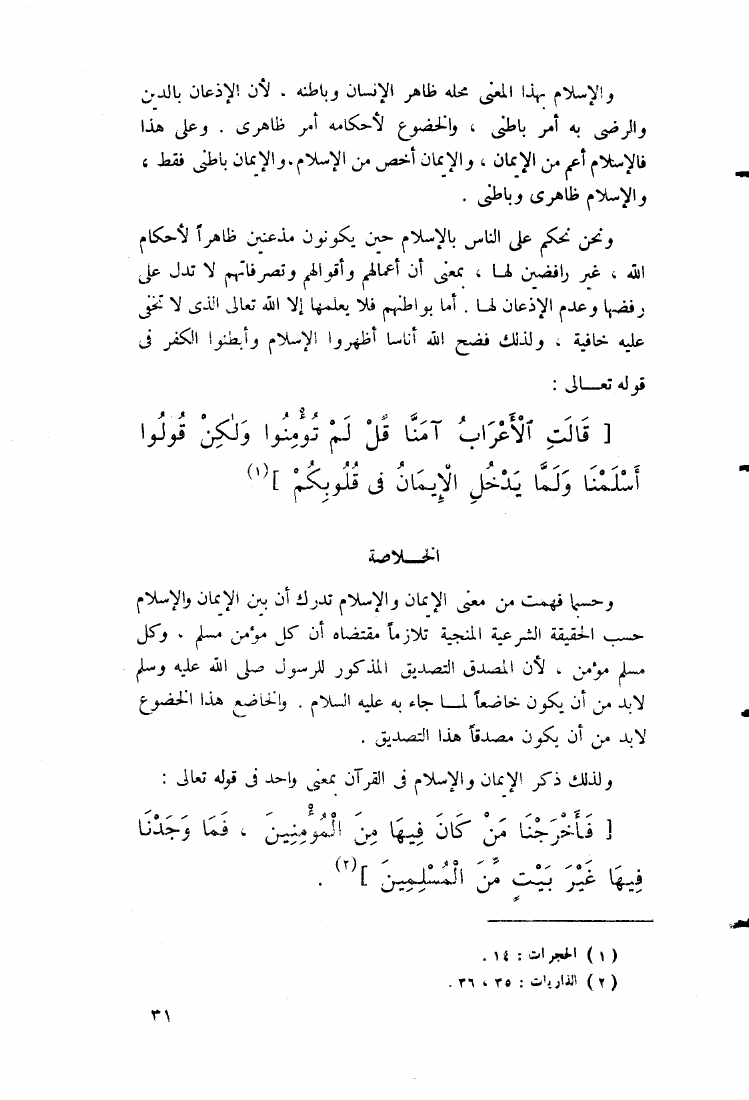 والإسلام بهذا المعنى محله ظاهر الإنسان وباطنه . لأن الإذعان بالدين
والرضى به أمر باطنى ، والخضوع لأحكامه أمر ظاهرى . وعلى هذا
فالإسلام أعم من الإيمان ، والإيمان أخص من الإسلام . والإيمان باطنى فقط ،
والإسلام ظاهرى وباطنى .
ونحن نحكم على الناس بالإسلام حين يكونون مذعنين ظاهراً لأحكام
الله ، غير رافضين لهـا ، بمعنى أن أعمالهم وأقوالهم وتصرفاتهم لا تدل على
رفضها وعدم الإذعان لهـا . أما بواطنهم فلا يعلمها إلا الله تعالى الذى لا تخفى
عليه خافية ، ولذلك فضح الله أناسا أظهروا الإسلام وأبطنوا الكفر فى
قوله تعـــالى :
[ قَالَتِ الْأَعْرَابُ آمَنَّا قُلْ لَمْ تُؤْمِنُوا وَلٰكِنْ قُولُوا
أَسْلَمْنَا وَلَمَّا يَدْخُلِ الْإِيمَانُ فى قُلُوبِكُمْ ](١)
الخـــلاصة
وحسبما فهمت من معنى الإيمان والإسلام تدرك أن بين الإيمان والإسلام
حسب الحقيقة الشرعية المنجية تلازماً مقتضاه أن كل مؤمن مسلم . وكل
مسلم مؤمن ، لأن المصدق التصديق المذكور للرسول صلى الله عليه وسلم
لابد من أن يكون خاضعاً لمــا جاء به عليه السلام . والخاضع هذا الخضوع
لابد من أن يكون مصدقاً هذا التصديق .
ولذلك ذكر الإيمان والإسلام فى القرآن بمعنى واحد فى قوله تعالى :
[ فَأَخْرَجْنَا مَنْ كَانَ فِيهَا مِنَ الْمُؤْمِنِينَ ، فَمَا وَجَدْنَا
فِيهَا غَيْرَ بَيْتٍ مِّنَ الْمُسْلِمِينَ ](٢) .
( ١ ) الحجرات : ١٤ .
( ٢ ) الذاريات : ٣٥ ، ٣٦ .
٣١